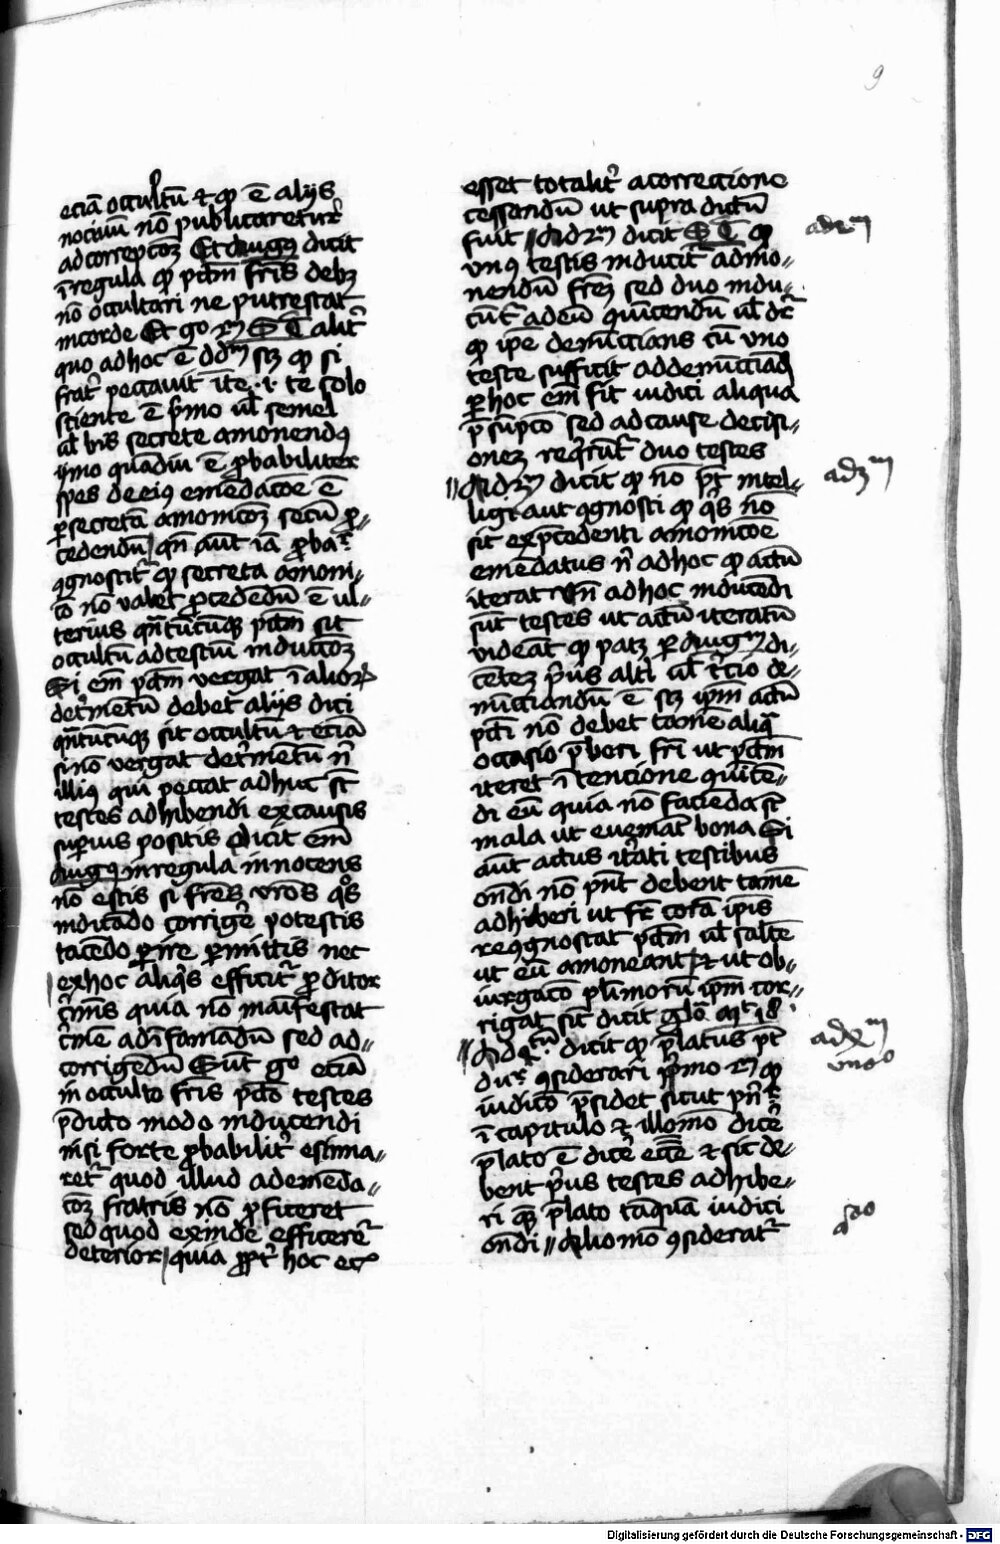 9
eciā occultū & qͥ ē alijs
nociuū nō publicaretur
ad correpcōꝫ Et Augꝰ dicit
ī regula qͥ pctm̄ fr̄is debꝫ
nō occultari ne putrescat
in corde Et go S T alit᷑
quo ad hoc ē scꝫ qͥ si
frat᷑ peccauit ī te .i. te solo
sciente ē p̄mo ul̄ semel
ul̄ bis secrete amonendꝰ
ymo quādiu ē ꝓbabiliter
spes de eiꝰ emēdacōe ē
ꝑ secretā amonicōꝫ secū ꝓ-
cedendū qn̄ aut̄ iā ꝓbaͬ
ꝯgnoscit᷑ qͥ secreta amoni-
cō nō valet ꝓcedēdū ē ul-
terius qn̄tūcūqꝫ pctm̄ sit
occultū ad testiū inductōꝫ
Si em̄ pctm̄ vergat ī alioꝝ
det͛mētū debet alijs dici
qn̄tūcūqꝫ sit occultū & eciā
si nō vergat det͛mētū n̄
illiꝰ qui peccat adhuc st̄
testes adhibendi ex causis
suꝑius positis Dicit em̄
Augꝰ in regula innocens
nō estis si fr̄es vr̄os qͦs
indicādo corrigē potestis
tacēdo ꝑire ꝑmittis nec
ex hoc aliqͥs efficit᷑ ꝓditor
c͛mīs quia nō maīfestat
c͛mē ad īfamādū sed ad-
corrigēdū Sūt go eciā
in occulto fr̄is pctō testes
p̄dicto modo inducendi
nisi forte ꝓbabilit᷑ estima-
ret᷑ quod illud ad emēda-
cōꝫ fratris nō ꝓficeret
sed quod exinde efficere᷑
deterior quia ꝓpt᷑ hoc etc
esset totalit᷑ a correctione
cessandū ut supra dictū
fuit Ad 2m dicit S T qͥ
vnꝰ testis inducit᷑ ad mo-
nendū fr̄eꝫ sed duo indu-
cūt᷑ ad eū ꝯuīcendū ul̄ dr̄
qͥ ip̄e denūccians cū vno
teste sufficit ad denūcciād
ꝑ hoc em̄ fit iudici aliqua
p̄sūpcō sed ad cause decisi-
oneꝫ reqͥrūt᷑ duo testes
Ad 3m dicit qͥ nō pt̄ intel-
ligi aut ꝯgnosci qͥ qͥs nō
sit ex p̄cedenti amonicōe
emēdatus n̄ ad hoc qͥ actū
iterat Vn̄ ad hoc inducēdi
sūt testes ut actū iteratū
videāt qͥ patꝫ ꝑ Augm di-
cētez p̄us alti ul̄ t͛cio de-
nūcciandū ē scꝫ ip̄m actū
pctī nō debet tamē aliqͣ
occasio p̄beri fr̄i ut pctm̄
iteret ī tencione ꝯuīcē-
di eū quia nō faciēda st̄
mala ut eueniāt bona Si
aut̄ actus it͛ati testibus
on̄di nō pn̄t debent tamē
adhiberi ut fr̄ corā ip̄is
reꝯgnoscat pctm̄ ul̄ saltē
ut eū amoneant & ut ob-
iurgacō pl͛imorū ip̄m cor-
rigat sic dicit glō Mt 18.
Ad qͬtū dicit qͥ p̄latus pt̄
durͬ ꝯsiderari p̄mo qͥ
iudicō p̄sidet sicut pn̄t᷑
ī capitulo & illo mō dicē
p̄lato ē dicē ecc̄e & sic de-
bent p̄us testes adhibe-
ri qͣꝫ p̄lato tāquā iudici
on̄di Alio mō ꝯsiderat᷑
ad 2m
ad 3m
ad 4m
vno